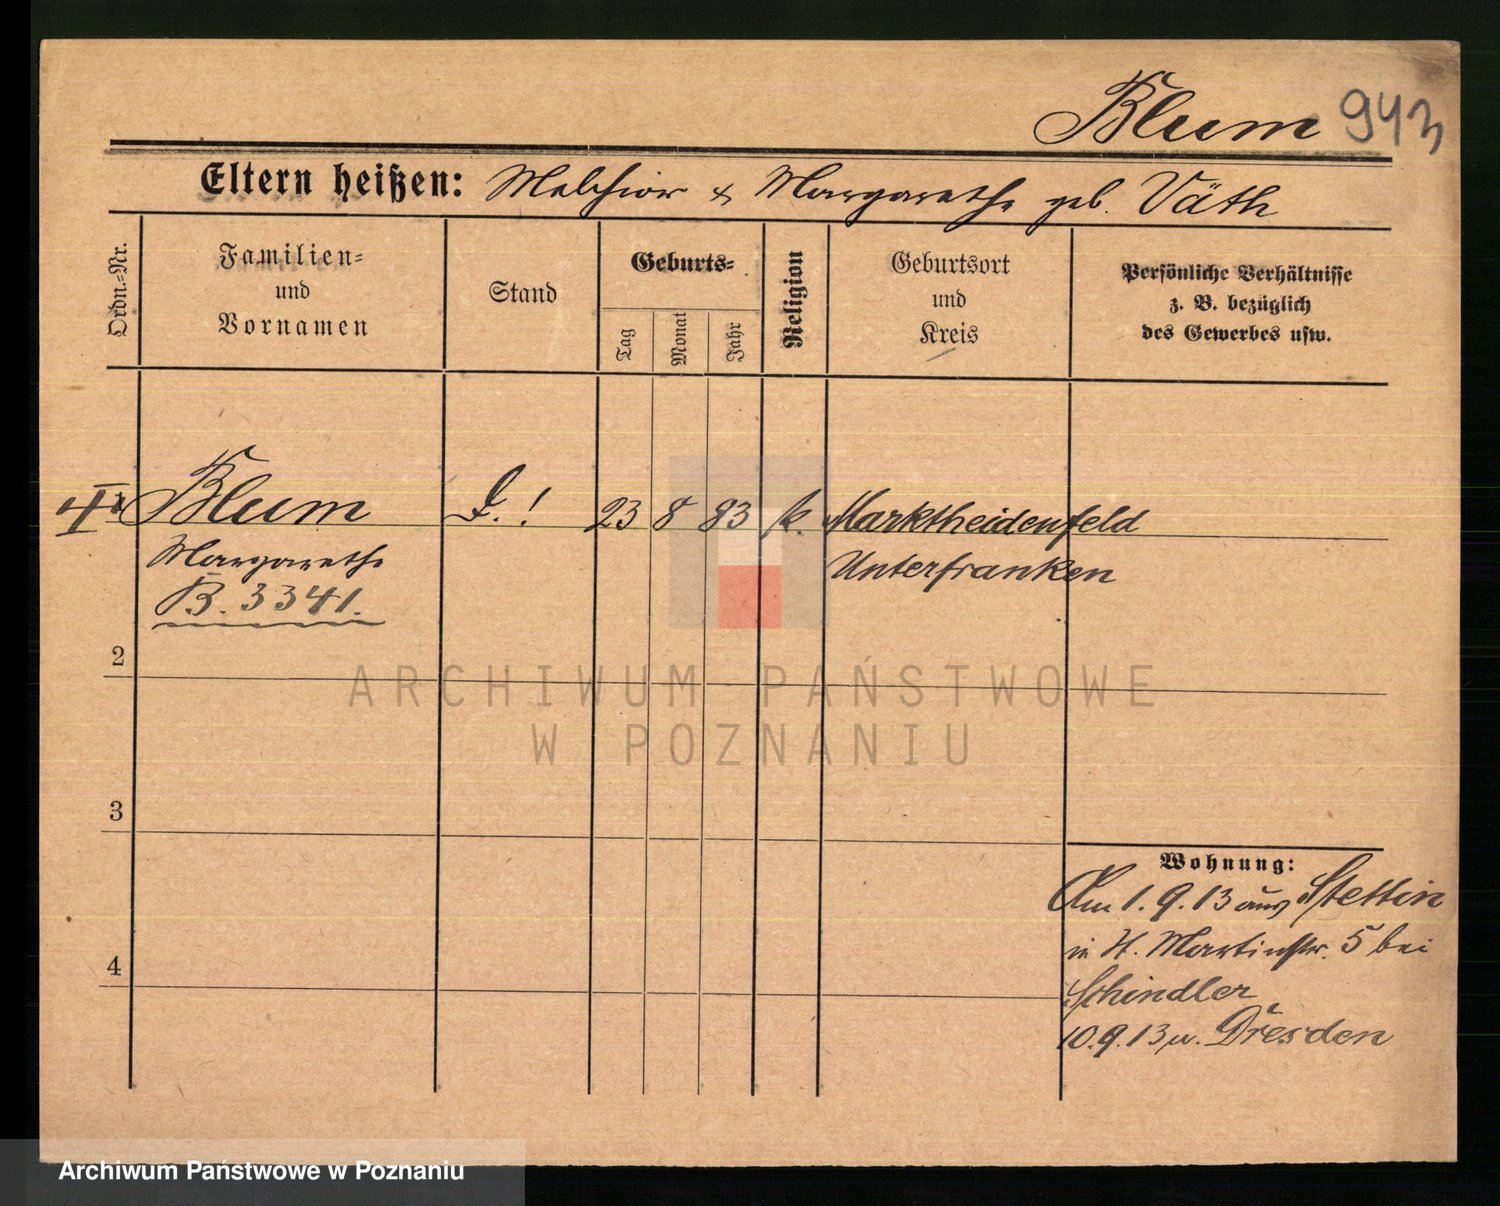 Blum 943
Eltern heißen: Melchior & Margarethe geb. Väth
Ordn.-Nr.
Familien-
und
Vornamen
Stand
Geburts-
Tag
Monat
Jahr
Religion
Geburtsort
und
Kreis
Persönliche Verhältnisse
z. B. bezüglich
des Gewerbes usw.
Blum
23 8 83 k. Marktheidenfeld
Margarethe
Unterfranken
B. 3341.
2
ARCHIWUM PAŃSTWOWE
W POZNANIU
3
Wohnung:
Am 1.9.13 aus Stettin
in St. Martinstr. 5 bei
Schindler
4
10.9.13 n. Dresden
Archiwum Państwowe w Poznaniu